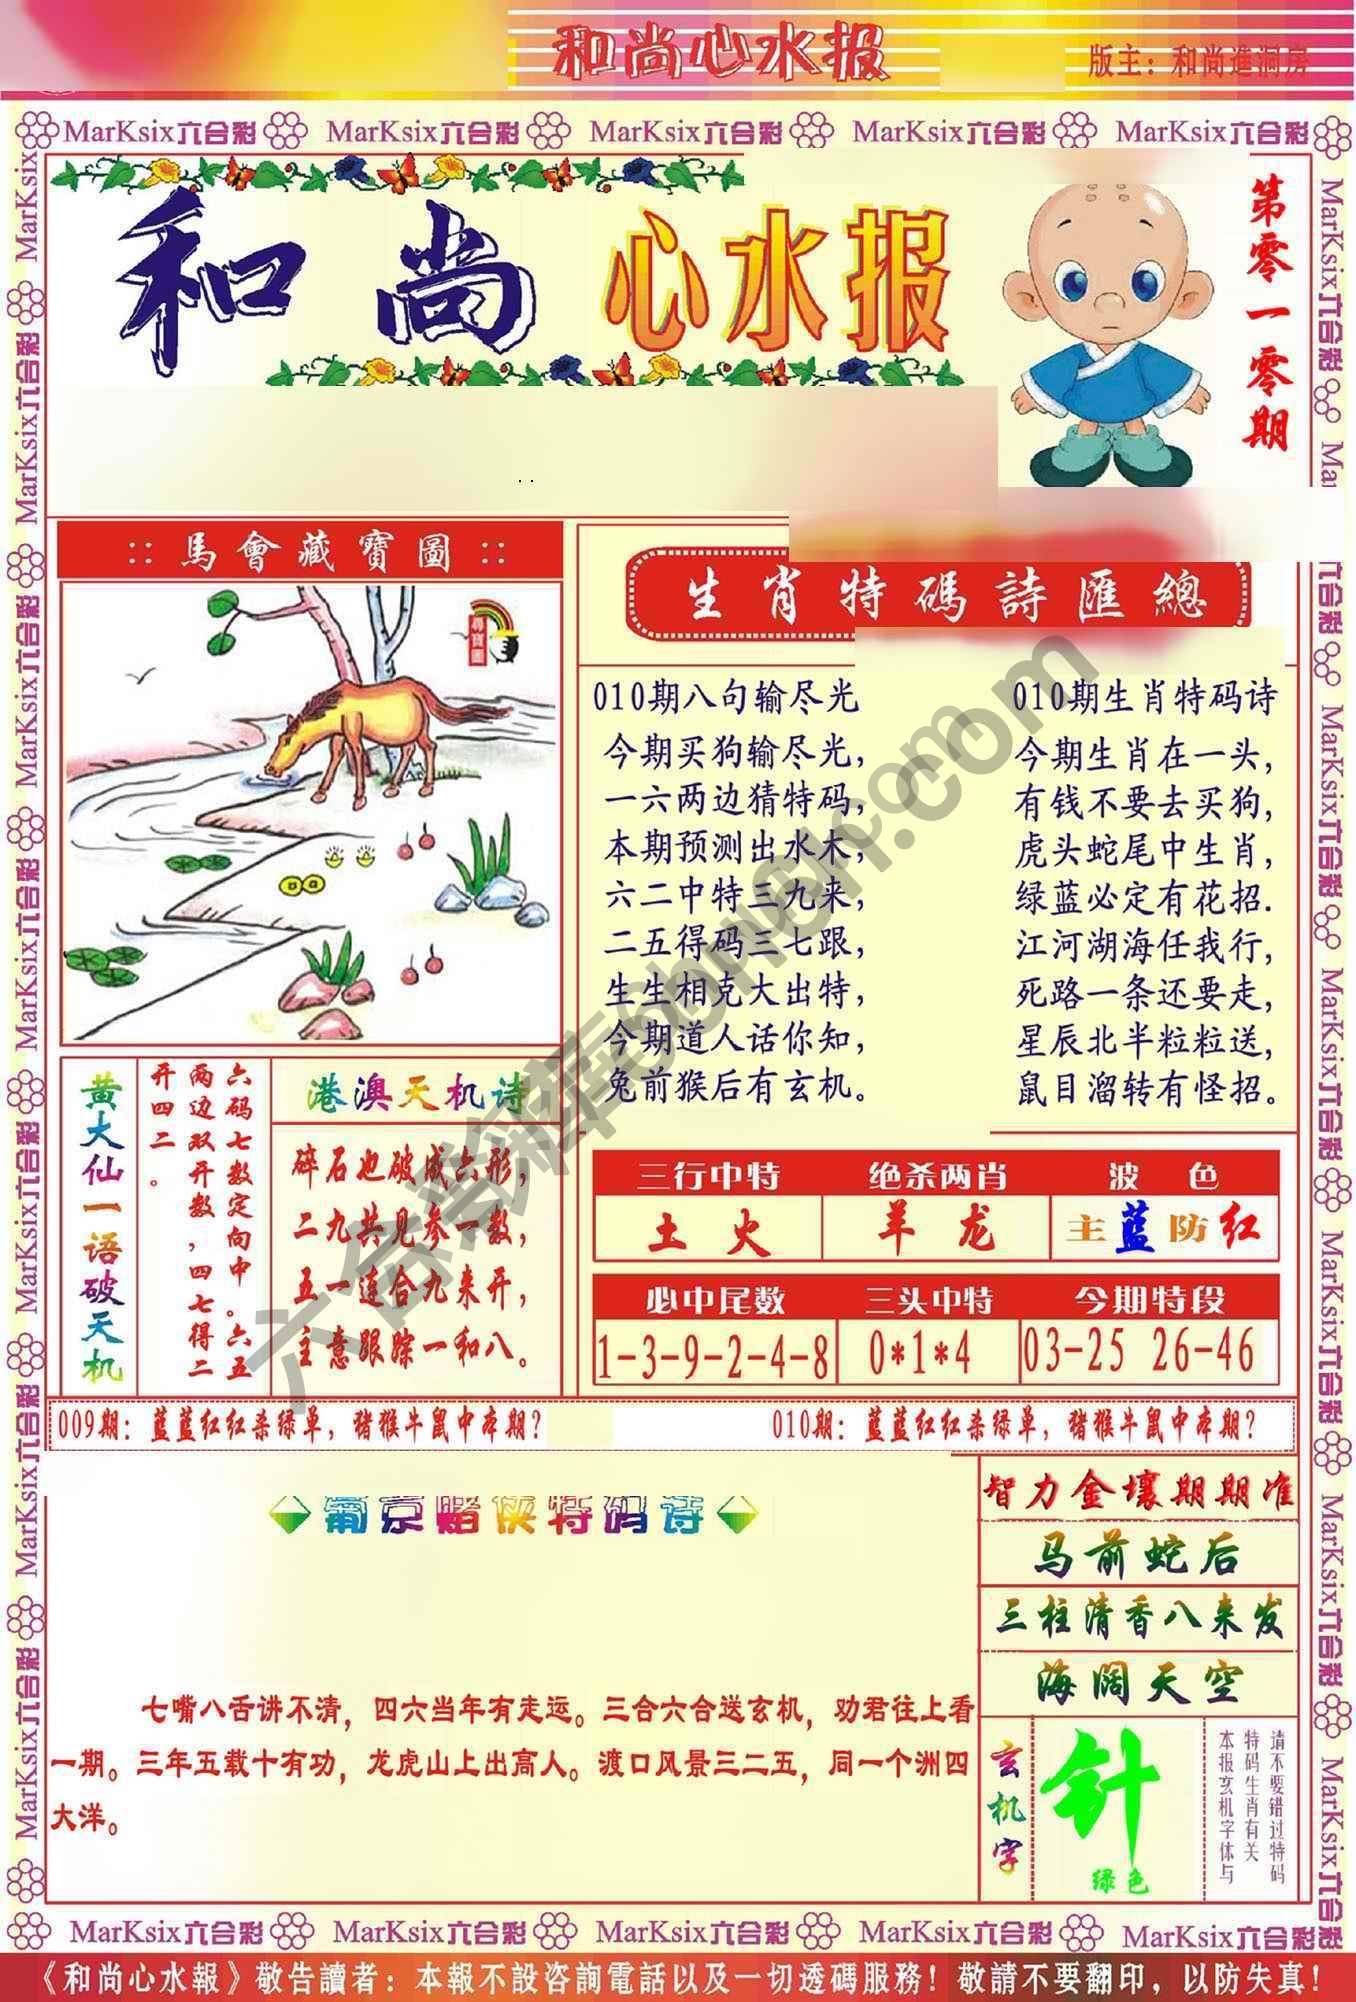 和尚心水报
版主：和尚進洞房
MarKsix六合彩 MarKsix六合彩 MarKsix六合彩 MarKsix六合彩 MarKsix六合彩
和尚 心水报
第零一零期
::馬會藏寶圖::
尋寶圖
生肖特碼詩匯總
010期八句输尽光
今期买狗输尽光，
一六两边猜特码，
本期预测出水木，
六二中特三九来，
二五得码三七跟，
生生相克大出特，
今期道人话你知，
兔前猴后有玄机。
010期生肖特码诗
今期生肖在一头，
有钱不要去买狗，
虎头蛇尾中生肖，
绿蓝必定有花招.
江河湖海任我行，
死路一条还要走，
星辰北半粒粒送，
鼠目溜转有怪招。
黄大仙一语破天机
六码七数定向中。六五
两边双开数，四七得二
开四二。
港澳天机诗
碎石也破成六形，
二九共见参一数，
五一连合九来开，
主意跟踪一和八。
三行中特 绝杀两肖 波色
土火 羊龙 主蓝防红
必中尾数 三头中特 今期特段
1-3-9-2-4-8 0*1*4 03-25 26-46
009期：蓝蓝红红杀绿单，猪猴牛鼠中本期？
010期：蓝蓝红红杀绿单，猪猴牛鼠中本期？
葡京赌侠特码诗
七嘴八舌讲不清，四六当年有走运。三合六合送玄机，劝君往上看
一期。三年五载十有功，龙虎山上出高人。渡口风景三二五，同一个洲四
大洋。
智力金壤期期准
马前蛇后
三柱清香八来发
海阔天空
玄机字
针
绿色
请不要错过特码
特码生肖有关
本报玄机字体与
MarKsix六合彩 MarKsix六合彩 MarKsix六合彩 MarKsix六合彩 MarKsix六合彩
《和尚心水報》敬告讀者：本報不設咨詢電話以及一切透碼服務！敬請不要翻印，以防失真！